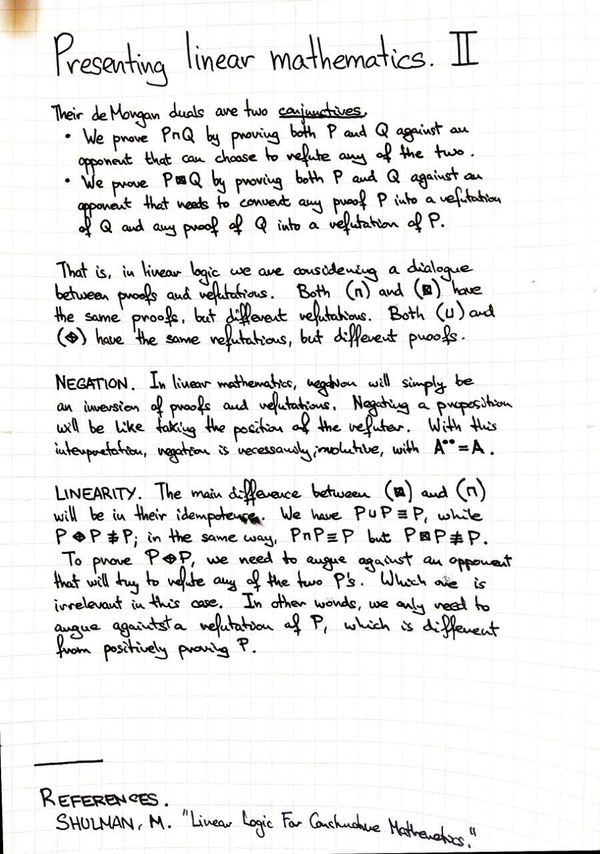 Presenting linear mathematics. II
Their de Morgan duals are two conjunctives.
• We prove P⊓Q by proving both P and Q against an
opponent that can choose to refute any of the two.
• We prove P⊠Q by proving both P and Q against an
opponent that needs to convert any proof P into a refutation
of Q and any proof of Q into a refutation of P.
That is, in linear logic we are considering a dialogue
between proofs and refutations. Both (⊓) and (⊠) have
the same proofs, but different refutations. Both (⊔) and
(⊕) have the same refutations, but different proofs.
NEGATION. In linear mathematics, negation will simply be
an inversion of proofs and refutations. Negating a proposition
will be like taking the position of the refuter. With this
interpretation, negation is necessarily, involutive, with A** = A.
LINEARITY. The main difference between (⊠) and (⊓)
will be in their idempotence. We have P⊔P ≡ P, while
P⊕P ≢ P; in the same way, P⊓P ≡ P but P⊠P ≢ P.
To prove P⊕P, we need to argue against an opponent
that will try to refute any of the two P's. Which one is
irrelevant in this case. In other words, we only need to
argue againtst a refutation of P, which is different
from positively proving P.
REFERENCES.
SHULMAN, M. "Linear Logic For Constructive Mathematics."